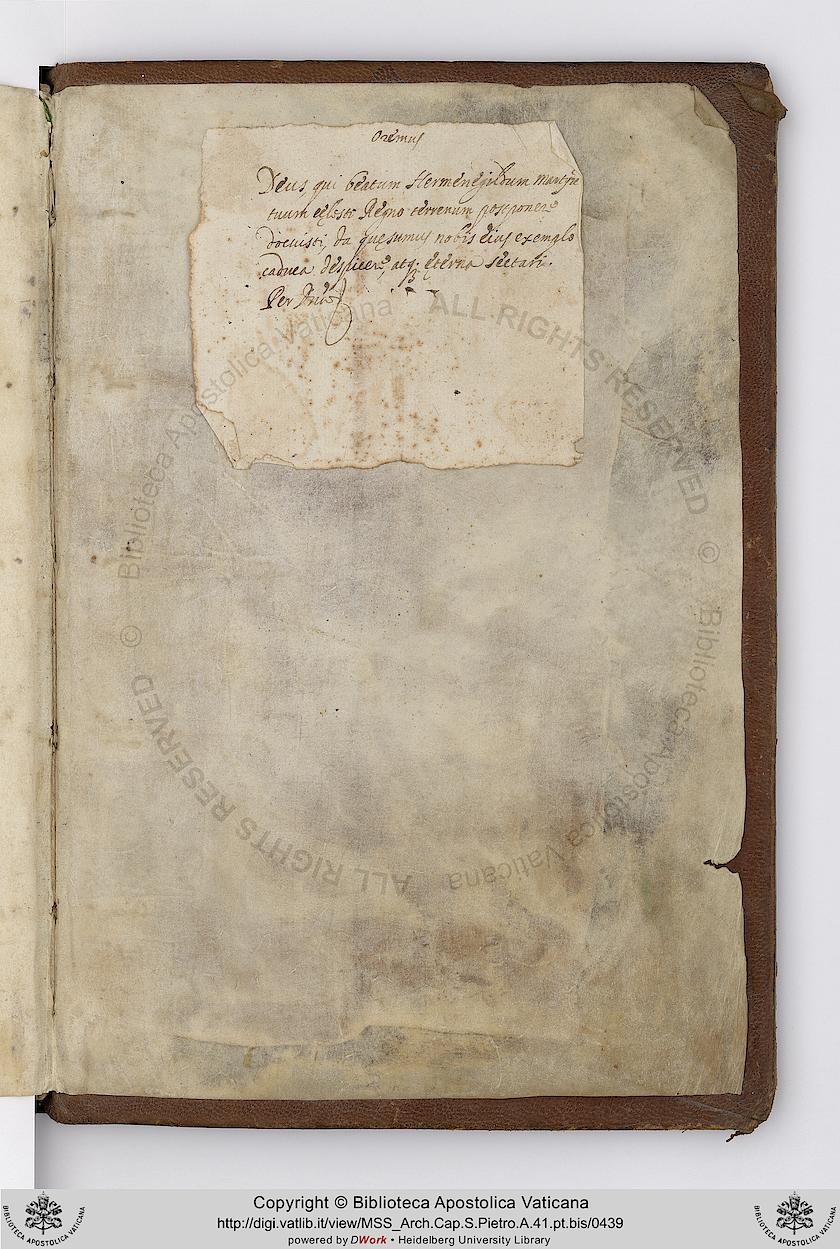 Oremus
Deus, qui beatum Hermenegildum martyre
tuum cęlesti Regno terrenum postponere
docuisti, da quęsumus nobis eius exemplo
caduca despicere, atq. ęterna sectari.
Per
© Biblioteca Apostolica Vaticana ALL RIGHTS RESERVED
© Biblioteca Apostolica Vaticana ALL RIGHTS RESERVED
Copyright © Biblioteca Apostolica Vaticana
http://digi.vatlib.it/view/MSS_Arch.Cap.S.Pietro.A.41.pt.bis/0439
powered by DWork • Heidelberg University Library
BIBLIOTECA APOSTOLICA VATICANA
BIBLIOTECA APOSTOLICA VATICANA